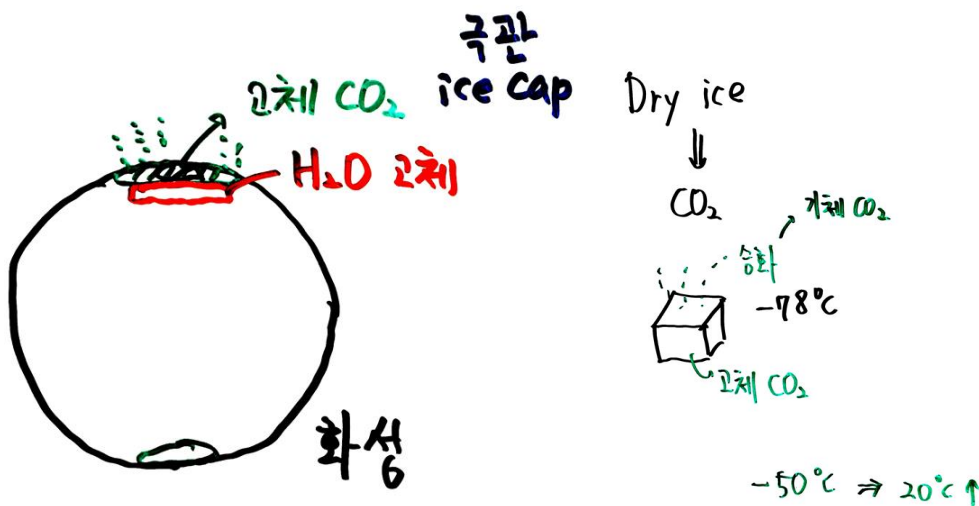 극관
ice cap
고체 CO₂
H₂O 고체
화성
Dry ice
⇓
CO₂
기체 CO₂
승화
-78°C
고체 CO₂
-50°C ⇒ 20°C ↑